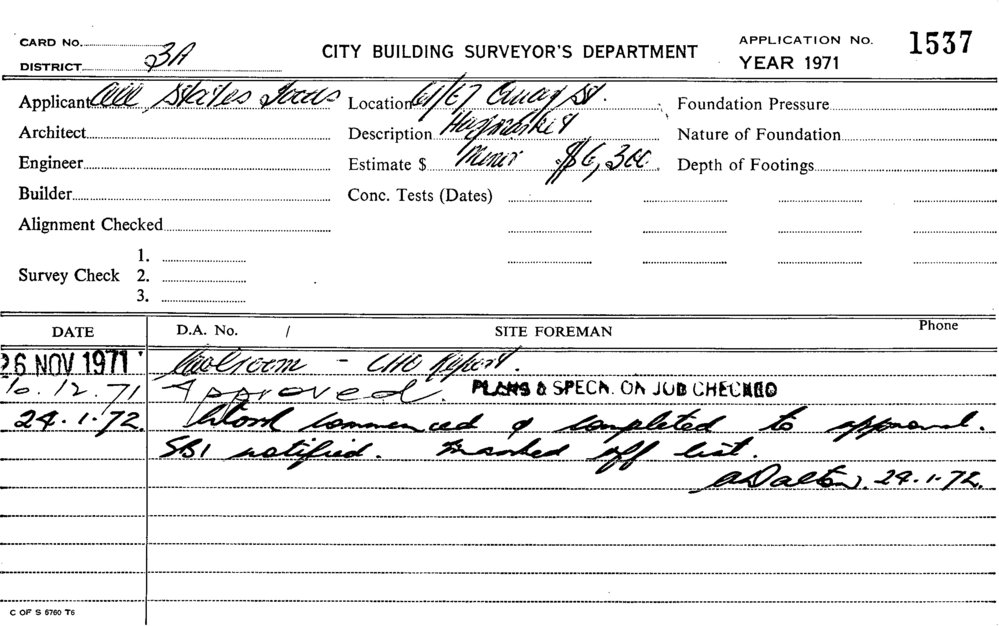 CARD No.
DISTRICT 3A
CITY BUILDING SURVEYOR'S DEPARTMENT
APPLICATION No. 1537
YEAR 1971
Applicant All States
Location 61/67 Quay St.
Foundation Pressure
Architect
Description Haymarket
Nature of Foundation
Engineer
Estimate $ Minor $6,300
Depth of Footings
Builder
Conc. Tests (Dates)
Alignment Checked
Survey Check 1.
2.
3.
DATE D.A. No. / SITE FOREMAN Phone
26 NOV 1971 Coolroom - CHO Report.
10.12.71 Approved. PLANS & SPECN. ON JOB CHECKED
24.1.72. Work commenced & completed to approval.
SBI notified. Marked off list.
A Dalton. 24.1.72.
C OF S 5760 T6